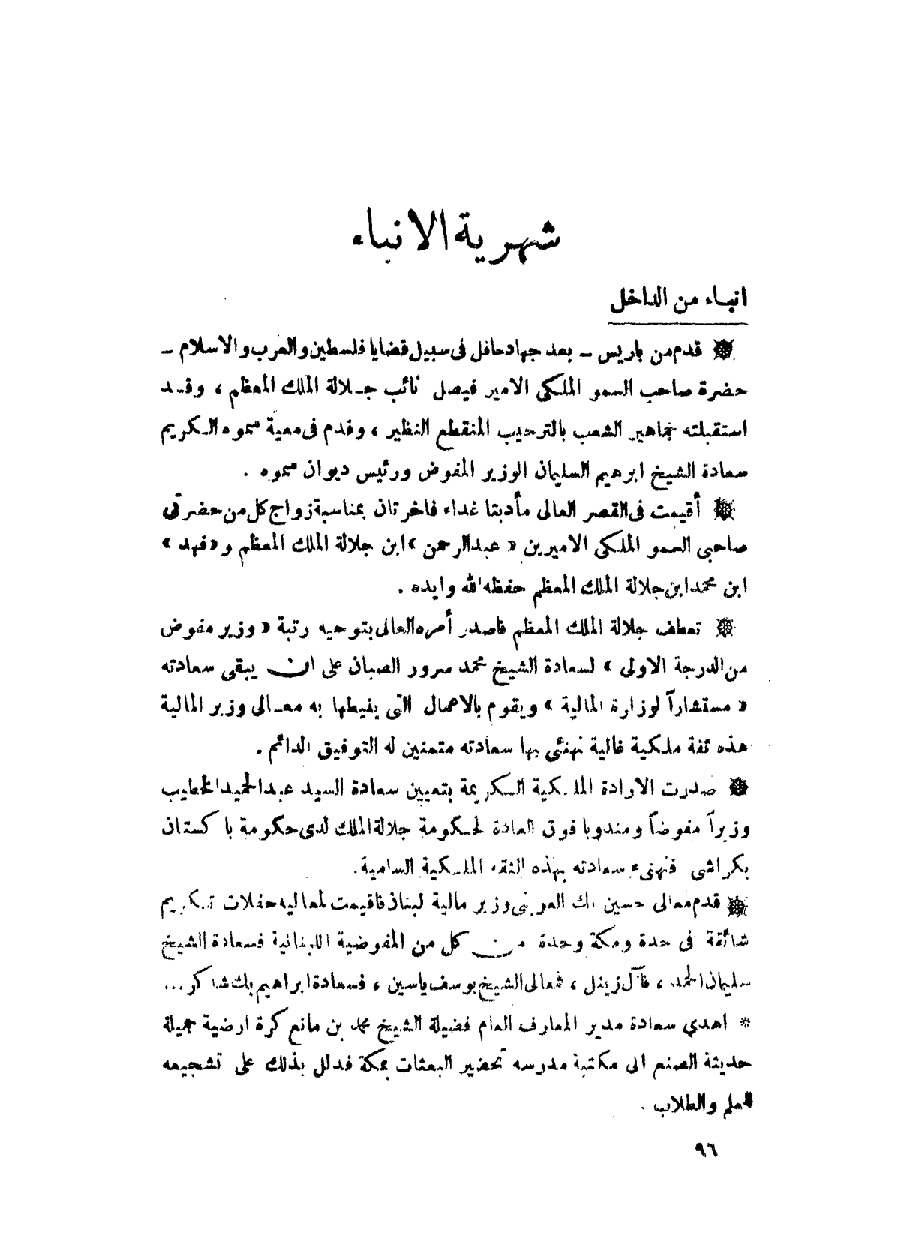 شهرية الانباء
انباء من الداخل
❁ قدم من باريس – بعد جهاد حافل فى سبيل قضايا فلسطين والعرب والاسلام –
حضرة صاحب السمو الملكى الامير فيصل نائب جلالة الملك المعظم ، وقد
استقبلته جماهير الشعب بالترحيب المنقطع النظير ، وقدم فى معية سموه الكريم
سعادة الشيخ ابرهيم السليمان الوزير المفوض ورئيس ديوان سموه .
❁ أقيمت فى القصر العالى مأدبتا غداء فاخرتان بمناسبة زواج كل من حضرتى
صاحبى السمو الملكى الاميرين « عبدالرحمن » ابن جلالة الملك المعظم و « فهد »
ابن محمد ابن جلالة الملك المعظم حفظه الله وايده .
❁ تعطف جلالة الملك المعظم فاصدر أمره العالى بتوجيه رتبة « وزير مفوض
من الدرجة الاولى » لسعادة الشيخ محمد سرور الصبان على ان يبقى سعادته
« مستشاراً لوزارة المالية » ويقوم بالاعمال التى يغيطها به معالى وزير المالية
هذه ثقة ملكية غالية نهنئى بها سعادته متمنين له التوفيق الدائم .
❁ صدرت الارادة الملكية الكريمة بتعيين سعادة السيد عبدالحميد الخطيب
وزيراً مفوضاً ومندوبا فوق العادة لحكومة جلالة الملك لدى حكومة باكستان
بكراشى فنهنىء سعادته بهذه الثقة الملكية السامية .
❁ قدم معالى حسين بك العوينى وزير مالية لبنان فاقيمت لمعاليه حفلات تكريم
شائقة فى جدة ومكة وحدة من كل من المفوضية اللبنانية فسعادة الشيخ
سليمان الحمد ، فآل زينل ، فمعالى الشيخ يوسف ياسين ، فسعادة ابراهيم بك شاكر ...
* اهدي سعادة مدير المعارف العام فضيلة الشيخ محمد بن مانع كرة ارضية جميلة
حديثة الصنع الى مكتبة مدرسه تحضير البعثات بمكة فدلل بذلك على تشجيعه
للعلم والطلاب .
٩٦